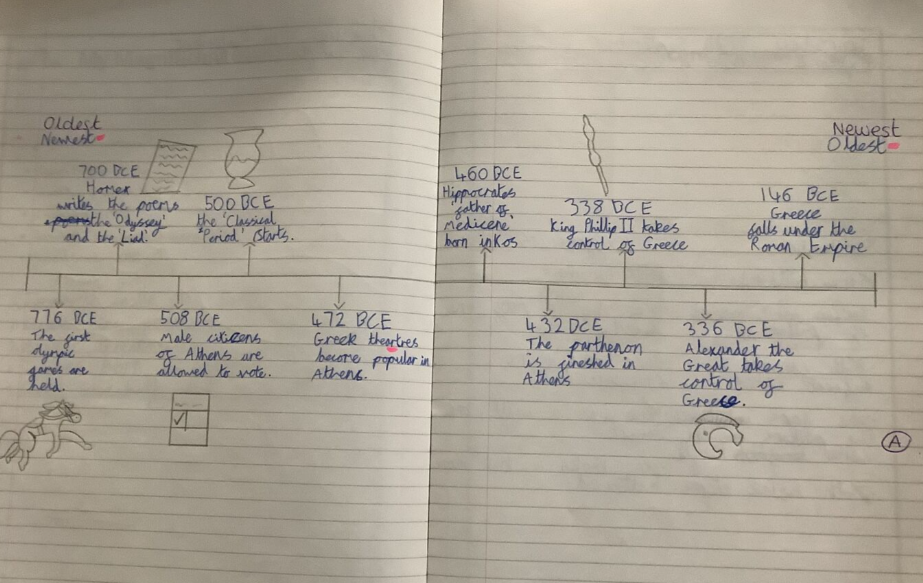 Oldest
Newest
700 BCE
Homer
writes the poems
the 'Odyssey'
and the 'Liad'
500 BCE
the 'Classical
Period' Starts.
776 BCE
The first
olympic
games are
held.
508 BCE
Male citizens
of Athens are
allowed to vote.
472 BCE
Greek theartres
become popular in
Athens.
460 BCE
Hippocrates
'father of
Medicene'
born in Kos
338 BCE
King Phillip II takes
control of Greece
Newest
Oldest
146 BCE
Greece
falls under the
Roman Empire
432 BCE
The parthenon
is fineshed in
Athens
336 BCE
Alexander the
Great takes
control of
Greece.
A